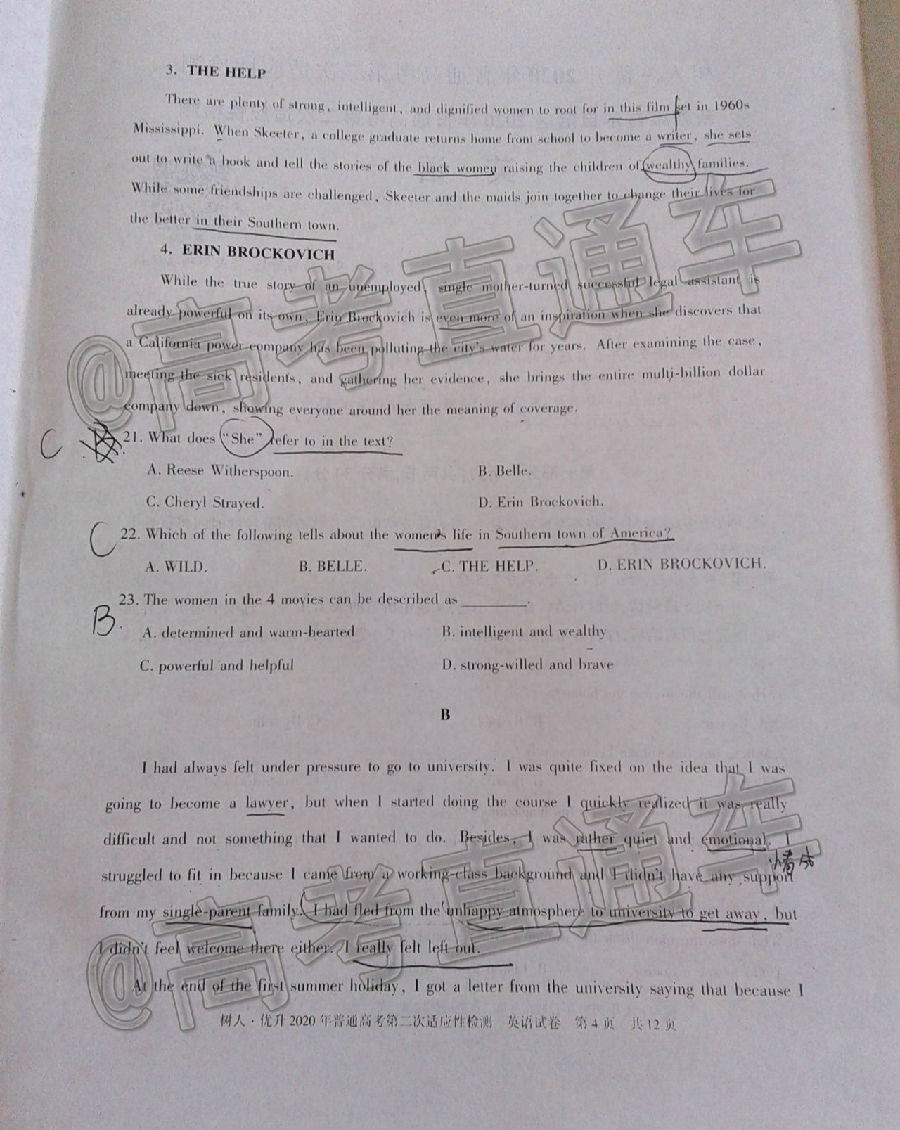 3. THE HELP
There are plenty of strong, intelligent, and dignified women to root for in this film set in 1960s
Mississippi. When Skeeter, a college graduate returns home from school to become a writer, she sets
out to write a book and tell the stories of the black women raising the children of wealthy families.
While some friendships are challenged, Skeeter and the maids join together to change their lives for
the better in their Southern town.
4. ERIN BROCKOVICH
While the true story of an unemployed, single mother-turned successful legal assistant is
already powerful on its own, Erin Brockovich is even more of an inspiration when she discovers that
a California power company has been polluting the city's water for years. After examining the case,
meeting the sick residents, and gathering her evidence, she brings the entire multi-billion dollar
company down, showing everyone around her the meaning of coverage.
@高考直通车
C
21. What does "She" refer to in the text?
A. Reese Witherspoon. B. Belle.
C. Cheryl Strayed. D. Erin Brockovich.
C 22. Which of the following tells about the women's life in Southern town of America?
A. WILD. B. BELLE. C. THE HELP. D. ERIN BROCKOVICH.
B. 23. The women in the 4 movies can be described as ________.
A. determined and warm-hearted B. intelligent and wealthy
C. powerful and helpful D. strong-willed and brave
B
I had always felt under pressure to go to university. I was quite fixed on the idea that I was
going to become a lawyer, but when I started doing the course I quickly realized it was really
difficult and not something that I wanted to do. Besides, I was rather quiet and emotional. I
struggled to fit in because I came from a working-class background and I didn't have any support
from my single-parent family. I had fled from the unhappy atmosphere to university to get away, but
I didn't feel welcome there either. I really felt left out.
At the end of the first summer holiday, I got a letter from the university saying that because I
@高考直通车
树人·优升2020年普通高考第二次适应性检测 英语试卷 第4页 共12页